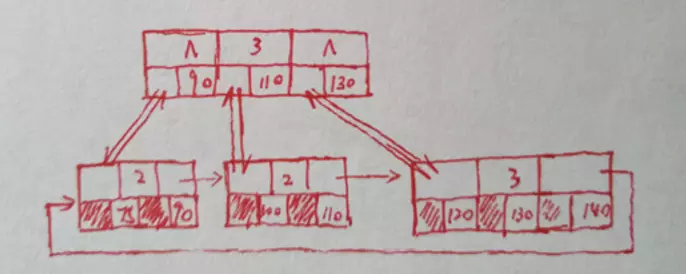 Λ 3 Λ
90 110 130
2 2 3
75 90 100 110 120 130 140